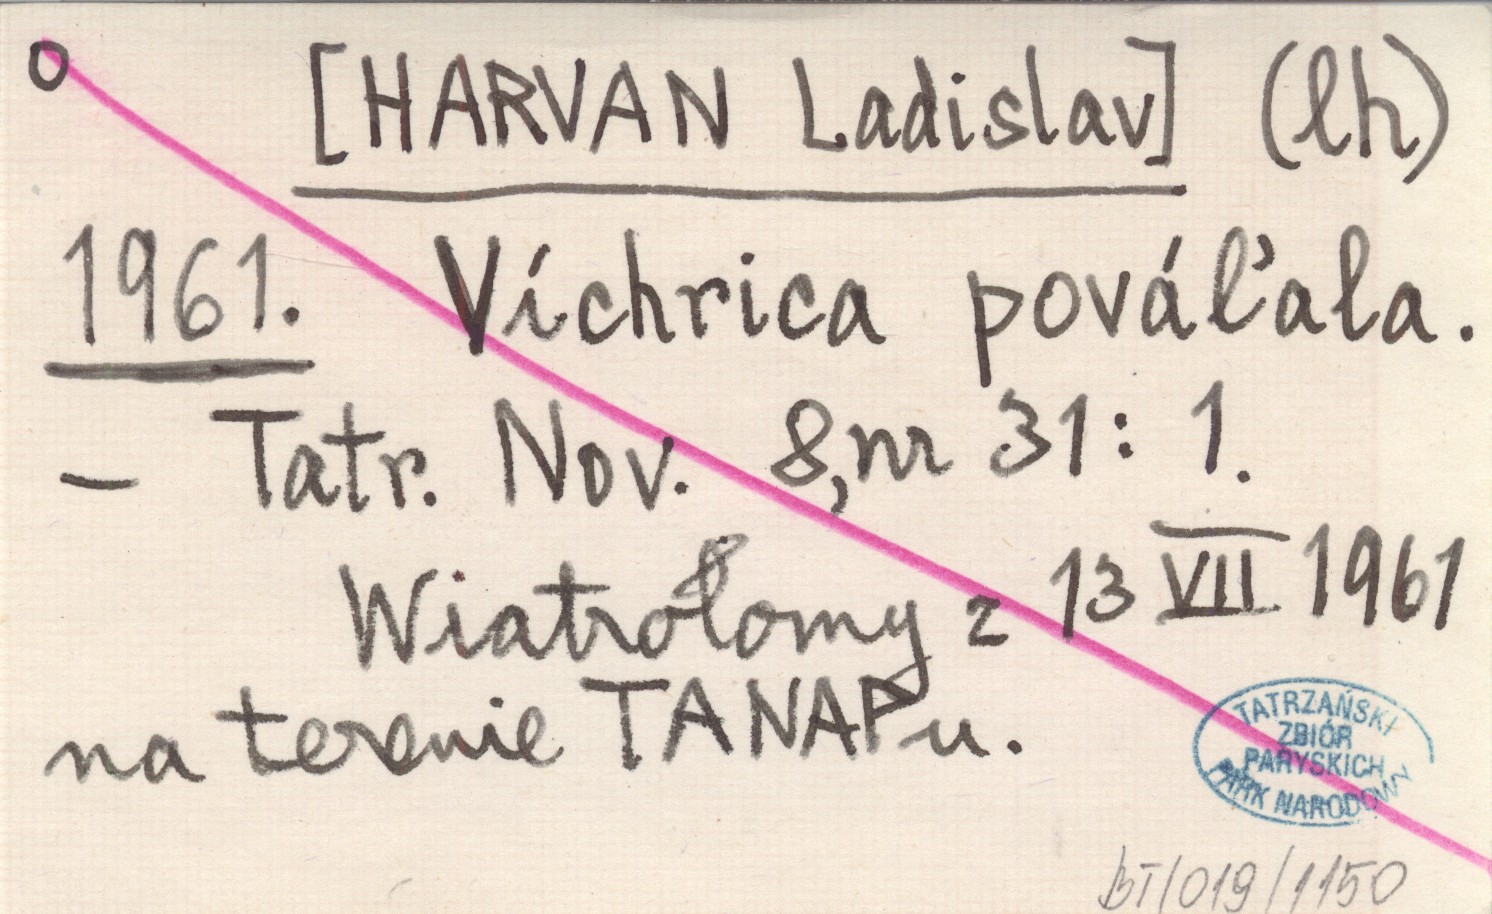 o [HARVAN Ladislav] (lh)
1961. Víchrica pováľala.
– Tatr. Nov. 8, nr 31: 1.
Wiatrołomy z 13 VII 1961
na terenie TANAPu.
TATRZAŃSKI
ZBIÓR
PARYSKICH
PARK NARODOWY
BT/019/1150